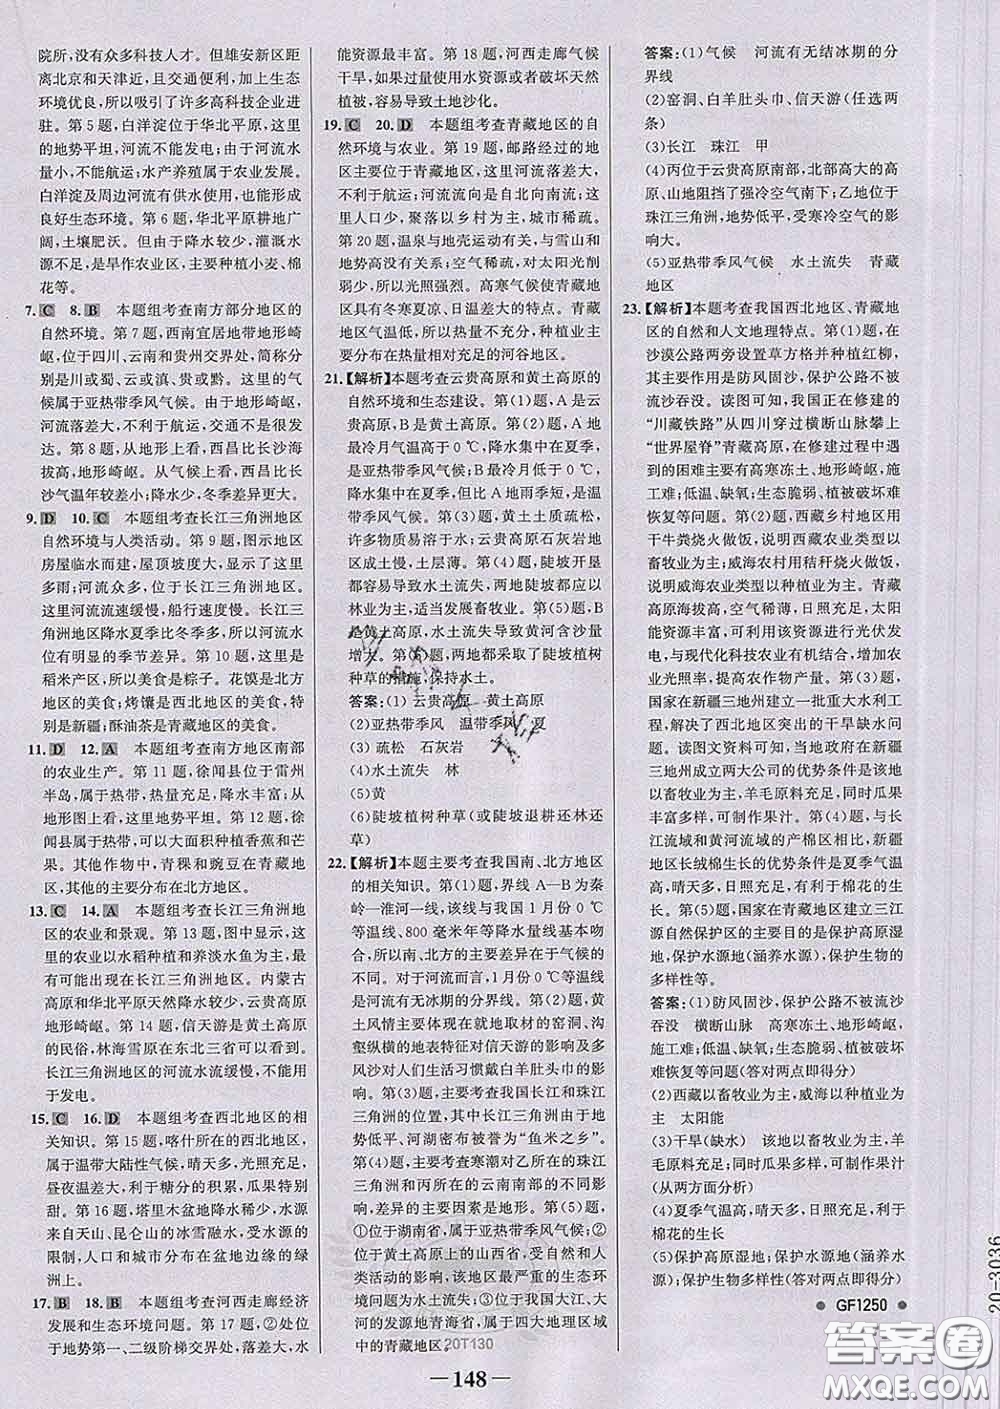 院所,没有众多科技人才。但雄安新区距
离北京和天津近,且交通便利,加上生态
环境优良,所以吸引了许多高科技企业进
驻。第5题,白洋淀位于华北平原,这里
的地势平坦,河流不能发电;由于河流水
量小,不能航运;水产养殖属于农业发展。
白洋淀及周边河流有供水使用,也能形成
良好生态环境。第6题,华北平原耕地广
阔,土壤肥沃。但由于降水较少,灌溉水
源不足,是旱作农业区,主要种植小麦、棉
花等。
7. C 8. B 本题组考查南方部分地区的
自然环境。第7题,西南宜居地带地形崎
岖,位于四川、云南和贵州交界处,简称分
别是川或蜀、云或滇、贵或黔。这里的气
候属于亚热带季风气候。由于地形崎岖,
河流落差大,不利于航运,经济并不发
达。第8题,从地形上看,西昌比长沙海
拔高,地形崎岖。从气候上看,西昌比长
沙气温年较差小;降水少,冬季差异更大。
9. D 10. C 本题组考查长江三角洲地区
自然环境与人类活动。第9题,图示地区
房屋临水而建,屋顶坡度大,显示了这里
多雨;河流众多,位于长江三角洲地区。
这里河流流速缓慢,船行速度慢。长江三
角洲地区降水夏季比冬季多,所以河流水
位有明显的季节差异。第10题,这里是
水稻产区,所以美食是粽子。花馍是北方
地区的美食;烤馕是西北地区的美食,特
别是新疆;酥油茶是青藏地区的美食。
11. D 12. A 本题组考查南方地区南部
的农业生产。第11题,徐闻县位于雷州
半岛,属于热带,热量充足,降水丰富;从
地形图上看,这里地势平坦。第12题,徐
闻县位于热带,可以大面积种植香蕉和芒
果。其他作物中,青稞和豌豆在青藏地
区,其他的主要分布在北方地区。
13. C 14. A 本题组考查长江三角洲地
区的农业和景观。第13题,图中显示,这
里的农业以水稻种植和养淡水鱼为主,最
有可能出现在长江三角洲地区。内蒙古
高原和华北平原天然降水少,云贵高原
地形崎岖。第14题,信天游是黄土高原
的民俗,林海雪原在东北三省可以看到。
长江三角洲地区的河流水流缓慢,不能用
于发电。
15. C 16. D 本题组考查西北地区的相
关知识。第15题,喀什所在的西北地区,
属于温带大陆性气候,晴天多,光照充足,
昼夜温差大,利于糖分的积累,瓜果特别
甜。第16题,塔里木盆地降水稀少,水源
来自天山、昆仑山的冰雪融水,受水源的
限制,人口和城市分布在盆地边缘的绿
洲上。
17. B 18. B 本题组考查河西走廊经济
发展和生态环境问题。第17题,②处位
于地势第一、二级阶梯交界处,落差大,水
能资源最丰富。第18题,河西走廊气候
干旱,如果过量使用水资源或破坏天然
植被,容易导致土地沙化。
19. C 20. D 本题组考查青藏地区的自
然环境与农业。第19题,邮路经过的地
区,这里地形崎岖,所以河流落差大,
不利于航运;河流流向是自北向南流;这
里人口少,聚落以乡村为主,城市稀疏。
第20题,温泉与地壳运动有关,与雪山和
地热没有关系;空气稀薄,对太阳光削
弱少,所以光照强烈。高寒气候使青藏地
区具有冬寒夏凉、日温差大的特点。青藏
地区气温低,所以热量不充分,种植业主
要分布在热量相对充足的河谷地区。
21.【解析】本题考查云贵高原和黄土高原的
自然环境和生态建设。第(1)题,A是云
贵高原,B是黄土高原。第(2)题,A地
最冷月气温高于0℃,降水集中在夏季,
是亚热带季风气候;B最冷月低于0℃,
降水集中在夏季,但比A地雨季短,是温
带季风气候。第(3)题,黄土土质疏松,
许多物质易溶于水;云贵高原石灰岩地区
成土慢,土层薄。第(4)题,陡坡开垦
都容易导致水土流失,两地陡坡都应以
林业为主,适当发展畜牧业。第(5)题,B
是黄土高原,水土流失导致黄河含沙量
增大。第(6)题,两地都采取了陡坡植树
种草的措施,保持水土。
答案:(1)云贵高原 黄土高原
(2)亚热带季风 温带季风 夏
(3)疏松 石灰岩
(4)水土流失 林
(5)黄
(6)陡坡植树种草(或陡坡退耕还林还
草)
22.【解析】本题主要考查我国南、北方地区
的相关知识。第(1)题,界线A—B为秦
岭—淮河一线,该线与我国1月份0℃
等温线、800毫米年等降水量线基本吻
合,所以南、北方的主要差异在于气候的
不同。对于河流而言,1月份0℃等温线
是河流有无冰期的分界线。第(2)题,黄
土风情主要体现在就地取材的窑洞、沟
壑纵横的地表特征对信天游的影响及多
风沙对人们生活习惯戴白羊肚头巾的影
响。第(3)题,主要考查我国长江和珠江
三角洲的位置,其中长江三角洲由于地
势低平、河湖密布被誉为“鱼米之乡”。
第(4)题,主要考查寒潮对乙所在的珠江
三角洲和丙所在的云南南部的不同影
响,造成差异的原因是地形。第(5)题,
①位于湖南省,属于亚热带季风气候;②
位于黄土高原上的山西省,受自然和人
类活动的影响,该地区最严重的生态环境
问题为水土流失;③位于我国大江、大
河的源地青海省,属于四大地理区域
中的青藏地区。
答案:(1)气候 河流有无结冰期的分
界线
(2)窑洞、白羊肚头巾、信天游(任选两
条)
(3)长江 珠江 甲
(4)丙位于云贵高原南部,北部高大的高
原、山地阻挡了强冷空气南下;乙地位于
珠江三角洲,地势低平,受寒冷空气的影
响大。
(5)亚热带季风气候 水土流失 青藏
地区
23.【解析】本题考查我国西北地区、青藏地
区的自然和人文地理特点。第(1)题,在
沙漠公路两旁设置草方格并种植红柳,
其目的主要是防风固沙,保护公路不被
流沙吞没。读图可知,我国正在修建的
“川藏铁路”从四川穿过横断山脉攀上
“世界屋脊”青藏高原,在修建过程中遇
到的困难主要有高寒冻土、地形崎岖,施
工难;低温、缺氧;生态脆弱,植被破坏难
恢复等问题。第(2)题,西藏乡村地区
用干牛粪烧火做饭,说明农业类型以畜牧
业为主;威海农村用秸秆烧火做饭,
说明威海农业类型以种植业为主。青藏
高原海拔高,空气稀薄,日照充足,太阳
能资源丰富,可利用该资源进行光伏发
电,与现代化科技农业有机结合,增加农
业光照率,提高农作物产量。第(3)题,
国家在新疆三地州建立一批重大水利工
程,解决了西北地区突出的干旱缺水问
题。读图文资料可知,当地政府在新疆
三地州成立两大公司的优势条件是该地
以畜牧业为主,羊毛原料充足;瓜果种类
丰富多样,可制作果汁。第(4)题,与
长江流域和黄河流域的产棉区比,新疆
地区长绒棉生长的优势条件是夏季气温
高,晴天多,日照充足,有利于棉花的生
长。第(5)题,国家在青藏地区建立三江
源自然保护区的主要目的是保护高原湿
地,保护水源地(涵养水源),保护生物的
多样性等。
答案:(1)防风固沙,保护公路不被流沙
吞没 横断山脉 高寒冻土、地形崎岖,
施工难;低温、缺氧;生态脆弱,植被破坏
难恢复等问题(答对两点即得分)
(2)西藏以畜牧业为主,威海以种植业为
主 太阳能
(3)干旱(缺水) 该地以畜牧业为主,羊
毛原料充足;瓜果种类多样,可制作果汁
(从两方面分析)
(4)夏季气温高,晴天多,日照充足,有利于
棉花的生长
(5)保护高原湿地;保护水源地(涵养水
源);保护生物多样性(答对两点即得分)
● GF1250 ●
20-3036
20T130
— 148 —
答案圈
MXQE.COM